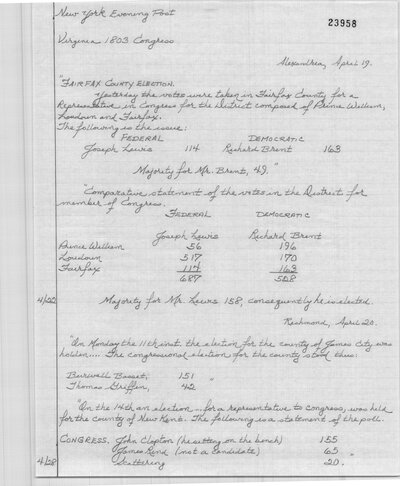 New York Evening Post
23958
Virginia 1803 Congress
Alexandria, April 19.
"FAIRFAX COUNTY ELECTION.
Yesterday the votes were taken in Fairfax County for a
Representative in Congress for the District composed of Prince William,
Loudoun and Fairfax.
The following is the issue:
FEDERAL DEMOCRATIC
Joseph Lewis 114 Richard Brent 163
Majority for Mr. Brent, 49."
"Comparative statement of the votes in the District for
member of Congress.
FEDERAL DEMOCRATIC
Joseph Lewis Richard Brent
Prince William 56 196
Loudoun 517 170
Fairfax 114 163
687 528
4/22 Majority for Mr. Lewis 158, consequently he is elected.
Richmond, April 20.
"On Monday the 11th inst. the election for the county of James City was
holden.... The congressional election for the county stood thus:
Burwell Basset, 151
Thomas Griffin, 42 "
"On the 14th an election ... for a representative to congress, was held
for the county of New Kent. The following is a statement of the poll.
CONGRESS. John Clopton (he sitting on the bench) 155
James (not a candidate) 65
4/28 Scattering 20."